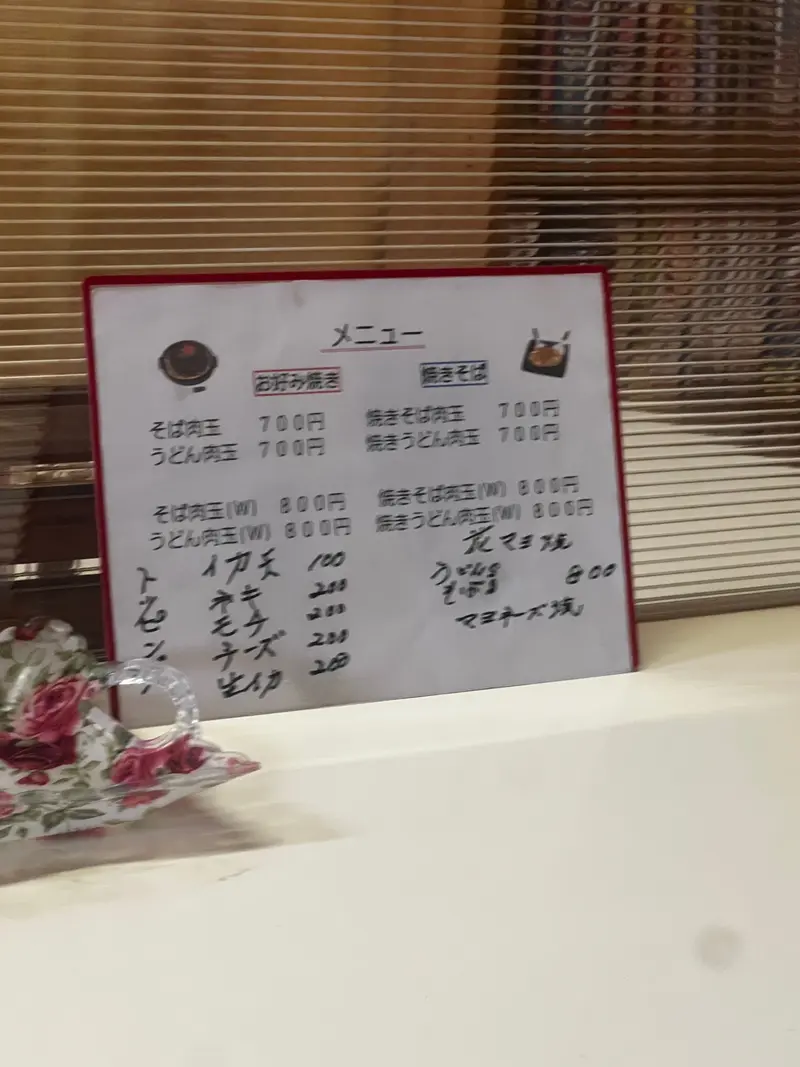 メニュー
お好み焼き
そば肉玉 700円
うどん肉玉 700円
そば肉玉(W) 800円
うどん肉玉(W) 800円
イカ天 100
ネギ 200
モチ 200
チーズ 200
生イカ 200
焼きそば
焼きそば肉玉 700円
焼きうどん肉玉 700円
焼きそば肉玉(W) 800円
焼きうどん肉玉(W) 800円
花マヨ焼
800
マヨネーズ焼